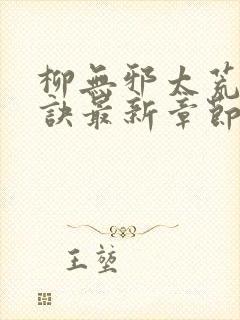 柳無邪太荒
訣最新章節
王堃